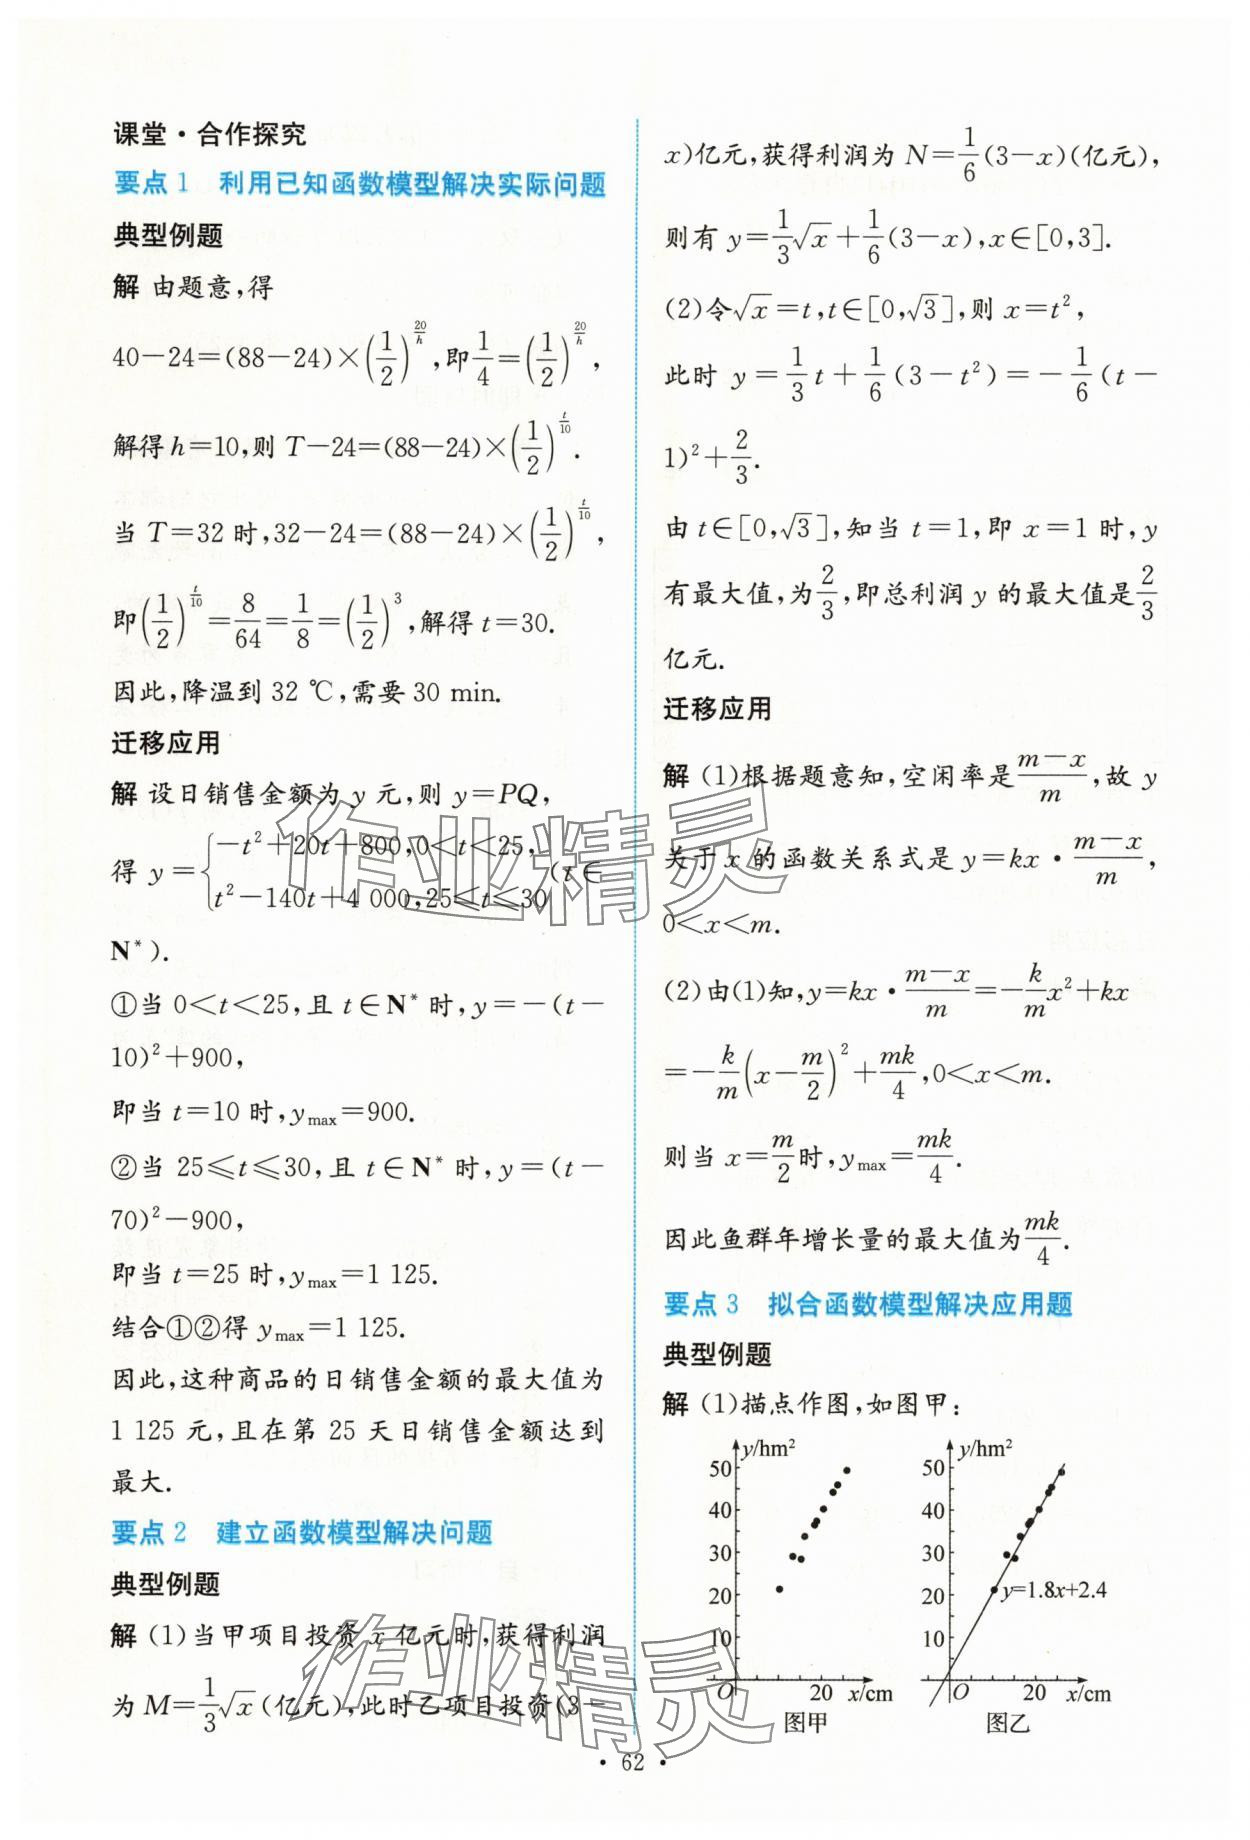 课堂·合作探究
要点1 利用已知函数模型解决实际问题
典型例题
解 由题意,得
40−24=(88−24)×(1/2)^(20/h),即1/4=(1/2)^(20/h),
解得h=10,则 T−24=(88−24)×(1/2)^(t/10).
当 T=32 时,32−24=(88−24)×(1/2)^(t/10),
即(1/2)^(t/10)=8/64=1/8=(1/2)^3,解得 t=30.
因此,降温到 32 ℃,需要 30 min.
迁移应用
解 设日销售金额为 y 元,则 y=PQ,
得 y={−t²+20t+800,0<t<25,
t²−140t+4 000,25≤t≤30 (t∈
N*).
①当 0<t<25,且 t∈N* 时,y=−(t−
10)²+900,
即当 t=10 时,ymax=900.
②当 25≤t≤30,且 t∈N* 时,y=(t−
70)²−900,
即当 t=25 时,ymax=1 125.
结合①②得 ymax=1 125.
因此,这种商品的日销售金额的最大值为
1 125 元,且在第 25 天日销售金额达到
最大.
要点2 建立函数模型解决问题
典型例题
解 (1)当甲项目投资 x 亿元时,获得利润
为 M=1/3√x(亿元),此时乙项目投资(3−
x)亿元,获得利润为 N=1/6(3−x)(亿元),
则有 y=1/3√x+1/6(3−x),x∈[0,3].
(2)令√x=t,t∈[0,√3],则 x=t²,
此时 y=1/3t+1/6(3−t²)=−1/6(t−
1)²+2/3.
由 t∈[0,√3],知当 t=1,即 x=1 时,y
有最大值,为2/3,即总利润 y 的最大值是2/3
亿元.
迁移应用
解 (1)根据题意知,空闲率是(m−x)/m,故 y
关于 x 的函数关系式是 y=kx·(m−x)/m,
0<x<m.
(2)由(1)知,y=kx·(m−x)/m=−k/m x²+kx
=−k/m(x−m/2)²+mk/4,0<x<m.
则当 x=m/2时,ymax=mk/4.
因此鱼群年增长量的最大值为mk/4.
要点3 拟合函数模型解决应用题
典型例题
解 (1)描点作图,如图甲:
y/hm²
50
40
30
20
10
O 20 x/cm
图甲
y/hm²
50
40
30
20
10
y=1.8x+2.4
O 20 x/cm
图乙
作业精灵
作业精灵
·62·